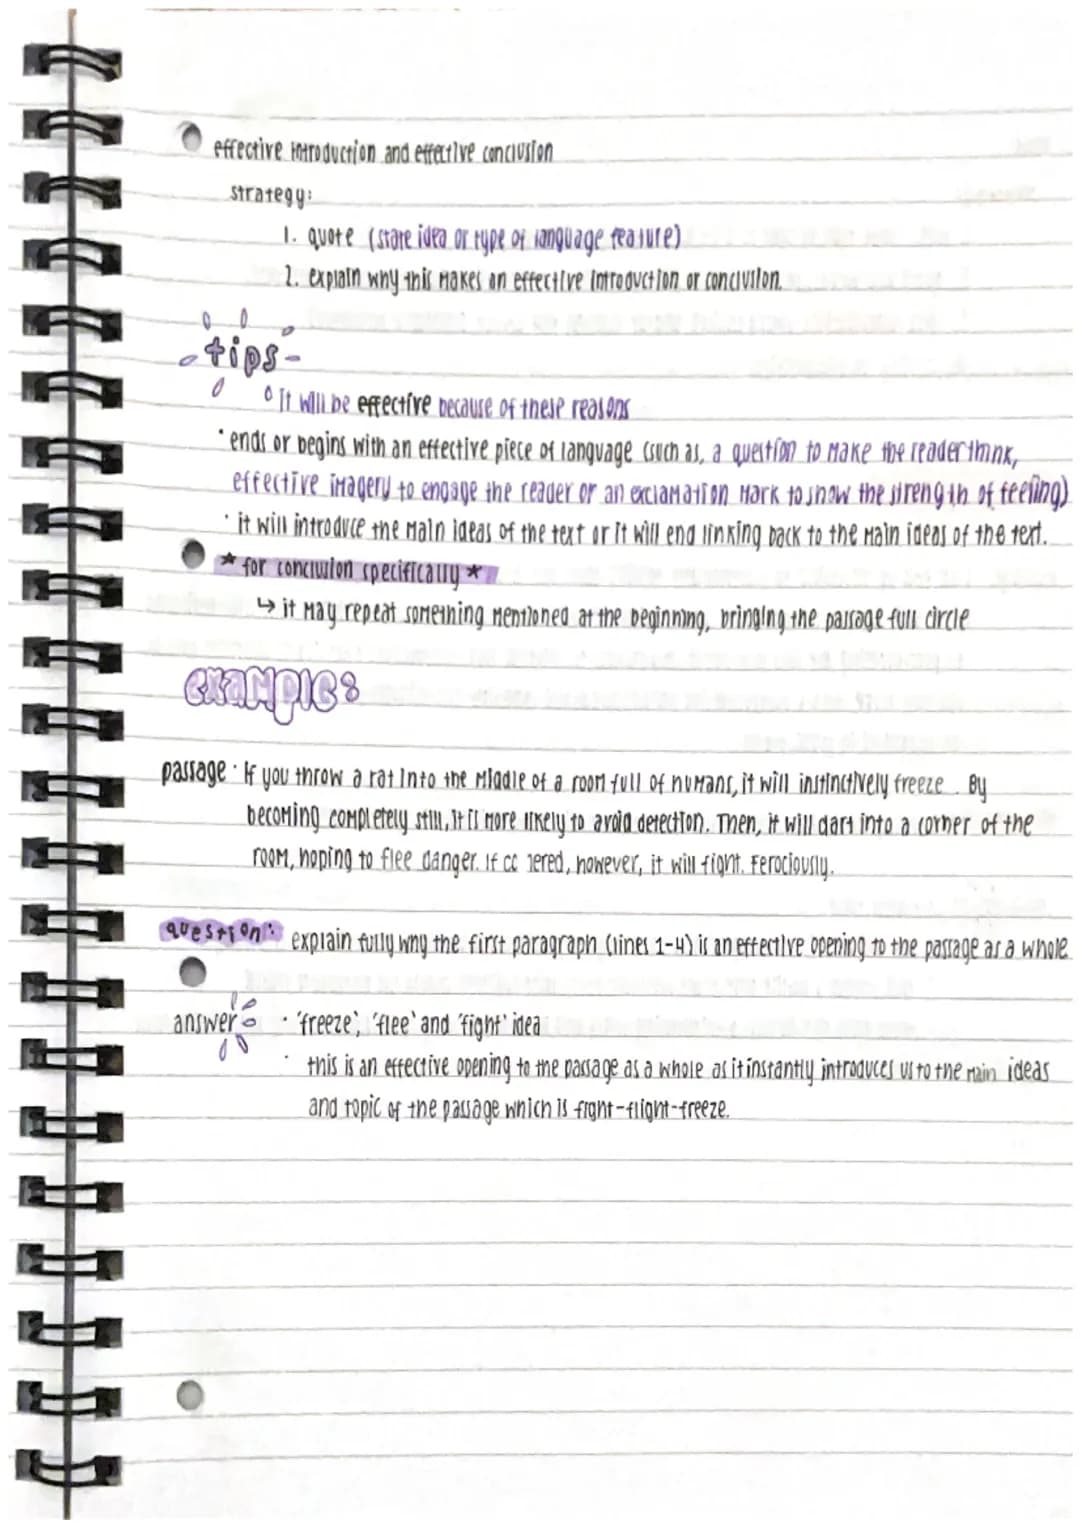 effective introduction and effective conclusion
strategy:
1. quote (state idea or type of language feature)
2. explain why this makes an effective introduction or conclusion.
tips
it will be effective because of these reasons
· ends or begins with an effective piece of language (such as, a question to make the reader think,
effective imagery to engage the reader or an exclamation mark to show the strength of feeling)
· it will introduce the main ideas of the text or it will end linking back to the main ideas of the text.
* for conclusion specifically *
↳ it may repeat something mentioned at the beginning, bringing the passage full circle
example:
passage · If you throw a rat into the middle of a room full of humans, it will instinctively freeze. By
becoming completely still, it is more likely to avoid detection. Then, it will dart into a corner of the
room, hoping to flee danger. If, however, it will fight. Ferociously.
question: explain fully why the first paragraph (lines 1-4) is an effective opening to the passage as a whole
answer · 'freeze', 'flee' and 'fight' idea
· this is an effective opening to the passage as a whole as it instantly introduces us to the main ideas
and topic of the passage which is fight-flight-freeze.